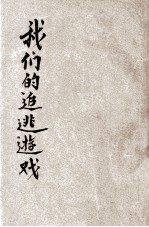 我们的追逃遊戏